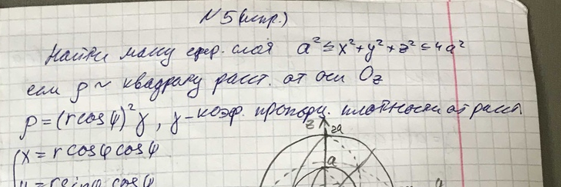 N 5 (контр.)
Найти массу сфер. слоя a² ≤ x² + y² + z² ≤ 4a²
если ρ ~ квадрату расст. от оси Oz
ρ = (r cos ψ)² γ, γ - коэф. пропорц. плотности от расст
x = r cos φ cos ψ
z 2a
a
y = r sin φ cos ψ